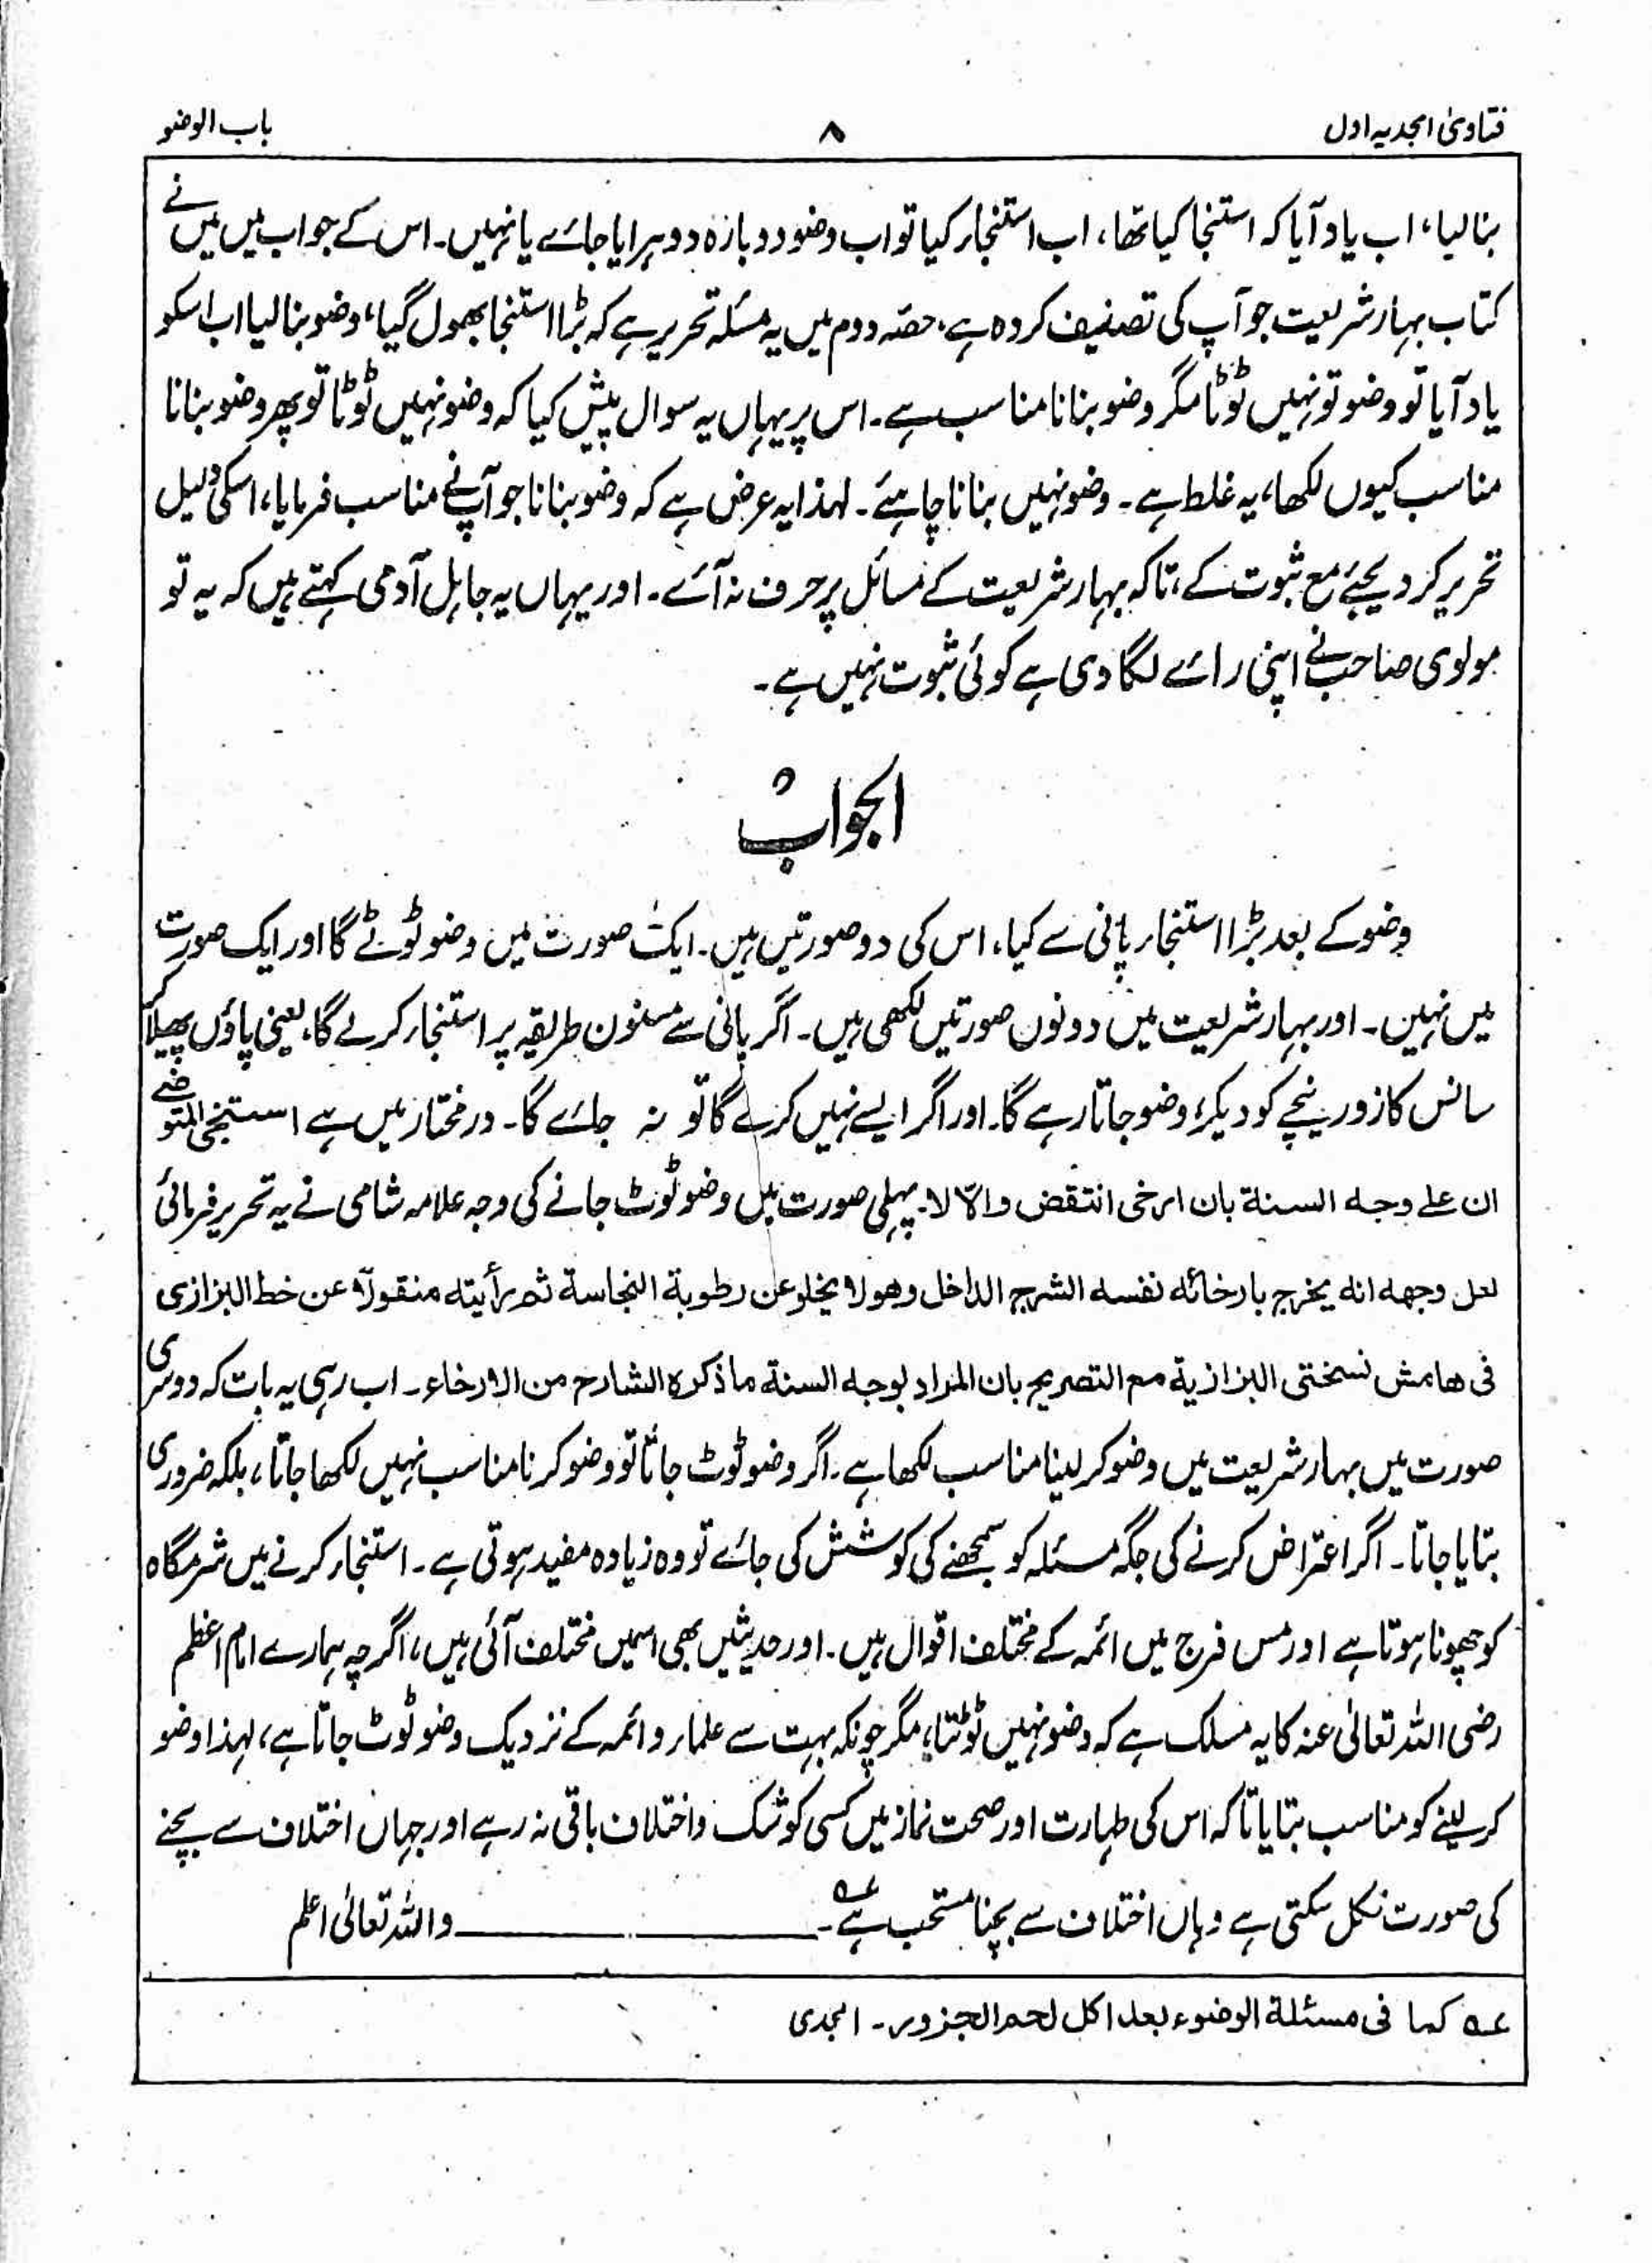 فتاویٰ امجدیہ اول
۸
باب الوضو
بنالیا، اب یاد آیا کہ استنجا کیا تھا، اب استنجار کیا تو اب وضو دوبارہ دوہرایا جائے یا نہیں۔ اس کے جواب میں میں نے
کتاب بہار شریعت جو آپ کی تصنیف کردہ ہے، حصّہ دوم میں یہ مسئلہ تحریر ہے کہ بڑا استنجا بھول گیا، وضو بنالیا اب اسکو
یاد آیا تو وضو تو نہیں ٹوٹا مگر وضو بنانا مناسب ہے۔ اس پر یہاں یہ سوال پیش کیا کہ وضو نہیں ٹوٹا تو پھر وضو بنانا
مناسب کیوں لکھا، یہ غلط ہے۔ وضو نہیں بنانا چاہئے۔ لہذا یہ عرض ہے کہ وضو بنانا جو آپ نے مناسب فرمایا، اسکی دلیل
تحریر کر دیجئے مع ثبوت کے، تاکہ بہار شریعت کے مسائل پر حرف نہ آئے۔ اور یہاں یہ جاہل آدمی کہتے ہیں کہ یہ تو
مولوی صاحب نے اپنی رائے لگا دی ہے کوئی ثبوت نہیں ہے۔
الجواب
وضو کے بعد بڑا استنجار پانی سے کیا، اس کی دو صورتیں ہیں۔ ایک صورت میں وضو ٹوٹے گا اور ایک صورت
میں نہیں۔ اور بہار شریعت میں دونوں صورتیں لکھی ہیں۔ اگر پانی سے مسنون طریقہ پر استنجار کرے گا، یعنی پاؤں پھیلا کر
سانس کا زور نیچے کو دیکر، وضو جاتا رہے گا۔ اور اگر ایسے نہیں کرے گا تو نہ جائے گا۔ درمختار میں ہے استنجی المتوضئ
ان علی وجه السنة بان ارخی انتقض والّا لا۔ پہلی صورت میں وضو ٹوٹ جانے کی وجہ علامہ شامی نے یہ تحریر فرمائی
لعل وجهه انه یخرج بارخائه نفسه الشرج الداخل وهو لا یخلو عن رطوبة النجاسة ثم رأیته منقولًا عن خط البزازی
فی هامش نسختی البزازیة مع التصریح بان المراد بوجه السنة ما ذکره الشارح من الارخاء۔ اب رہی یہ بات کہ دوسری
صورت میں بہار شریعت میں وضو کر لینا مناسب لکھا ہے۔ اگر وضو ٹوٹ جاتا تو وضو کرنا مناسب نہیں لکھا جاتا، بلکہ ضروری
بتایا جاتا۔ اگر اعتراض کرنے کی جگہ مسئلہ کو سمجھنے کی کوشش کی جائے تو وہ زیادہ مفید ہوتی ہے۔ استنجار کرنے میں شرمگاہ
کو چھونا ہوتا ہے اور مس فرج میں ائمہ کے مختلف اقوال ہیں۔ اور حدیثیں بھی اسمیں مختلف آئی ہیں، اگرچہ ہمارے امام اعظم
رضی اللہ تعالیٰ عنہ کا یہ مسلک ہے کہ وضو نہیں ٹوٹتا، مگر چونکہ بہت سے علمار و ائمہ کے نزدیک وضو ٹوٹ جاتا ہے، لہذا وضو
کر لینے کو مناسب بتایا تاکہ اس کی طہارت اور صحت نماز میں کسی کو شک واختلاف باقی نہ رہے اور جہاں اختلاف سے بچنے
کی صورت نکل سکتی ہے وہاں اختلاف سے بچنا مستحب ہے عہ۔ واللہ تعالیٰ اعلم
عہ کما فی مسئلة الوضوء بعد اکل لحم الجزور۔ امجدی